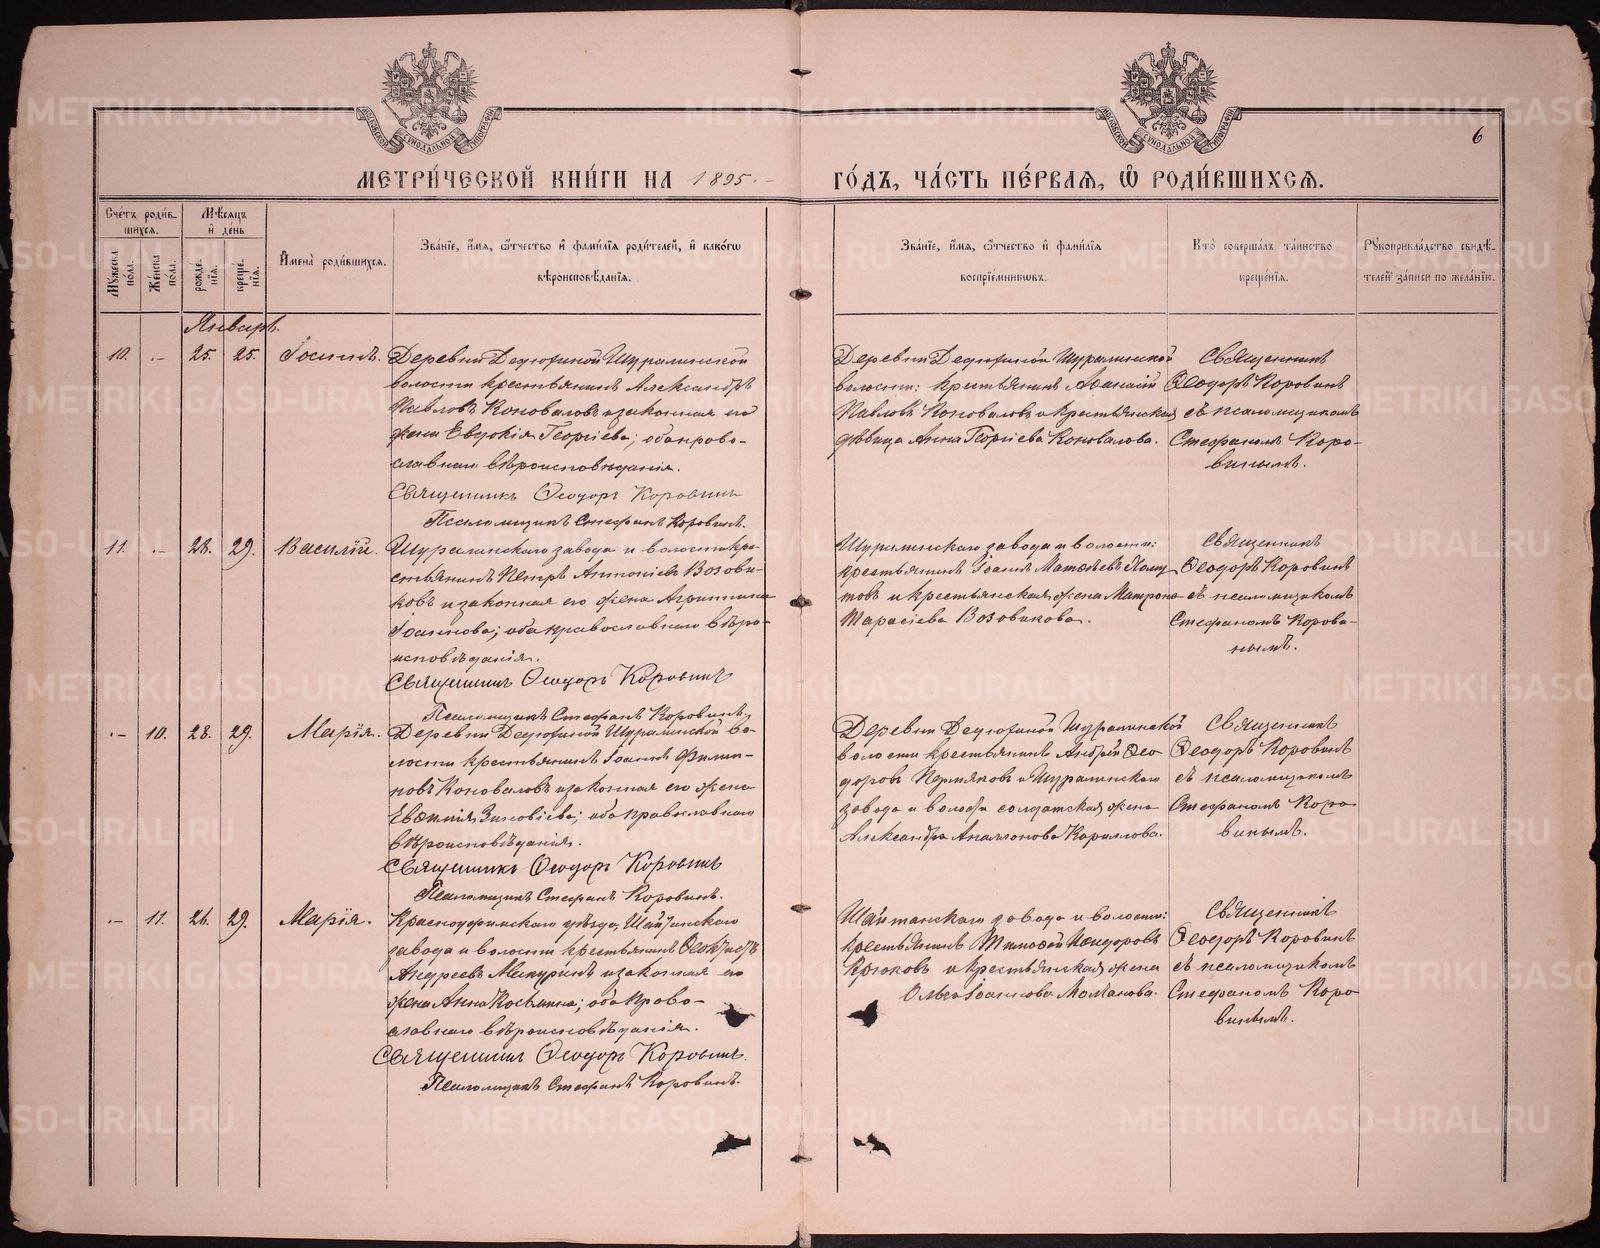 МОСКОВСКОЙ СУНОДАЛЬНОЙ ТИПОГРАФІИ
МОСКОВСКОЙ СУНОДАЛЬНОЙ ТИПОГРАФІИ
6
МЕТРИ́ЧЕСКОЙ КНИ́ГИ НА 1895.
ГО́ДЪ, ЧА́СТЬ ПЕ́РВАЯ, Ѡ РОДИ́ВШИХСЯ.
Сче́тъ роди́в-
шихся.
Му́жеска по́ла.
Же́нска по́ла.
Мѣ́сяцъ
и҆ день
рожде́-нїя.
креще́-нїя.
И҆мена̀ роди́вшихся.
Зва́нїе, и҆́мя, ѻ҆́тчество и҆ фами́лїя роди́телей, и҆ како́гѡ
вѣроисповѣ́данїя.
Зва́нїе, и҆́мя, ѻ҆́тчество и҆ фами́лїя
воспрїе́мниковъ.
Кто̀ соверша́лъ та́инство
креще́нїя.
Рꙋкоприкла́дство свидѣ́-
телей за́писи по жела́нїю.
Январь.
10. 25. 25. Іосифъ.
Деревни Дедюхиной Шуралинской
волости крестьянинъ Александръ
Павловъ Коноваловъ и законная его
жена Евдокія Георгіева; оба право-
славнаго вѣроисповѣданія.
Священникъ Ѳеодоръ Коровинъ
Псаломщикъ Стефанъ Коровинъ.
Деревни Дедюхиной Шуралинской
волости: крестьянинъ Аѳанасій
Павловъ Коноваловъ и крестьянская
дѣвица Анна Георгіева Коновалова.
Священникъ
Ѳеодоръ Коровинъ
съ псаломщикомъ
Стефаномъ Коро-
винымъ.
11. 28. 29. Василій.
Шуралинскаго завода и волости кре-
стьянинъ Петръ Антоніевъ Возови-
ковъ и законная его жена Агриппина
Іоаннова; оба православнаго вѣро-
исповѣданія.
Священникъ Ѳеодоръ Коровинъ
Псаломщикъ Стефанъ Коровинъ.
Шуралинскаго завода и волости:
крестьянинъ Іоаннъ Матѳеевъ
товъ и крестьянская жена Матрона
Тарасіева Возовикова.
Священникъ
Ѳеодоръ Коровинъ
съ псаломщикомъ
Стефаномъ Корови-
нымъ.
10. 28. 29. Марія.
Деревни Дедюхиной Шуралинской во-
лости крестьянинъ Іоаннъ Филип-
повъ Коноваловъ и законная его жена
Евѳимія Зиновіева; оба православнаго
вѣроисповѣданія.
Священникъ Ѳеодоръ Коровинъ
Псаломщикъ Стефанъ Коровинъ.
Деревни Дедюхиной Шуралинской
волости крестьянинъ Андрей Ѳео-
доровъ Пермяковъ и Шуралинскаго
завода и волости солдатская жена
Александра
Священникъ
Ѳеодоръ Коровинъ
съ псаломщикомъ
Стефаномъ Коро-
винымъ.
11. 26. 29. Марія.
Красноуфимскаго уѣзда, Шайтанскаго
завода и волости крестьянинъ
Андреевъ и законная его
жена Анна Косьмина; оба право-
славнаго вѣроисповѣданія.
Священникъ Ѳеодоръ Коровинъ.
Псаломщикъ Стефанъ Коровинъ.
Шайтанскаго завода и волости:
крестьянинъ Тимоѳей Исидоровъ
Крюковъ и крестьянская жена
Ольга Іоаннова Молчанова.
Священникъ
Ѳеодоръ Коровинъ
съ псаломщикомъ
Стефаномъ Коро-
винымъ.
METRIKI.GASO-URAL.RU